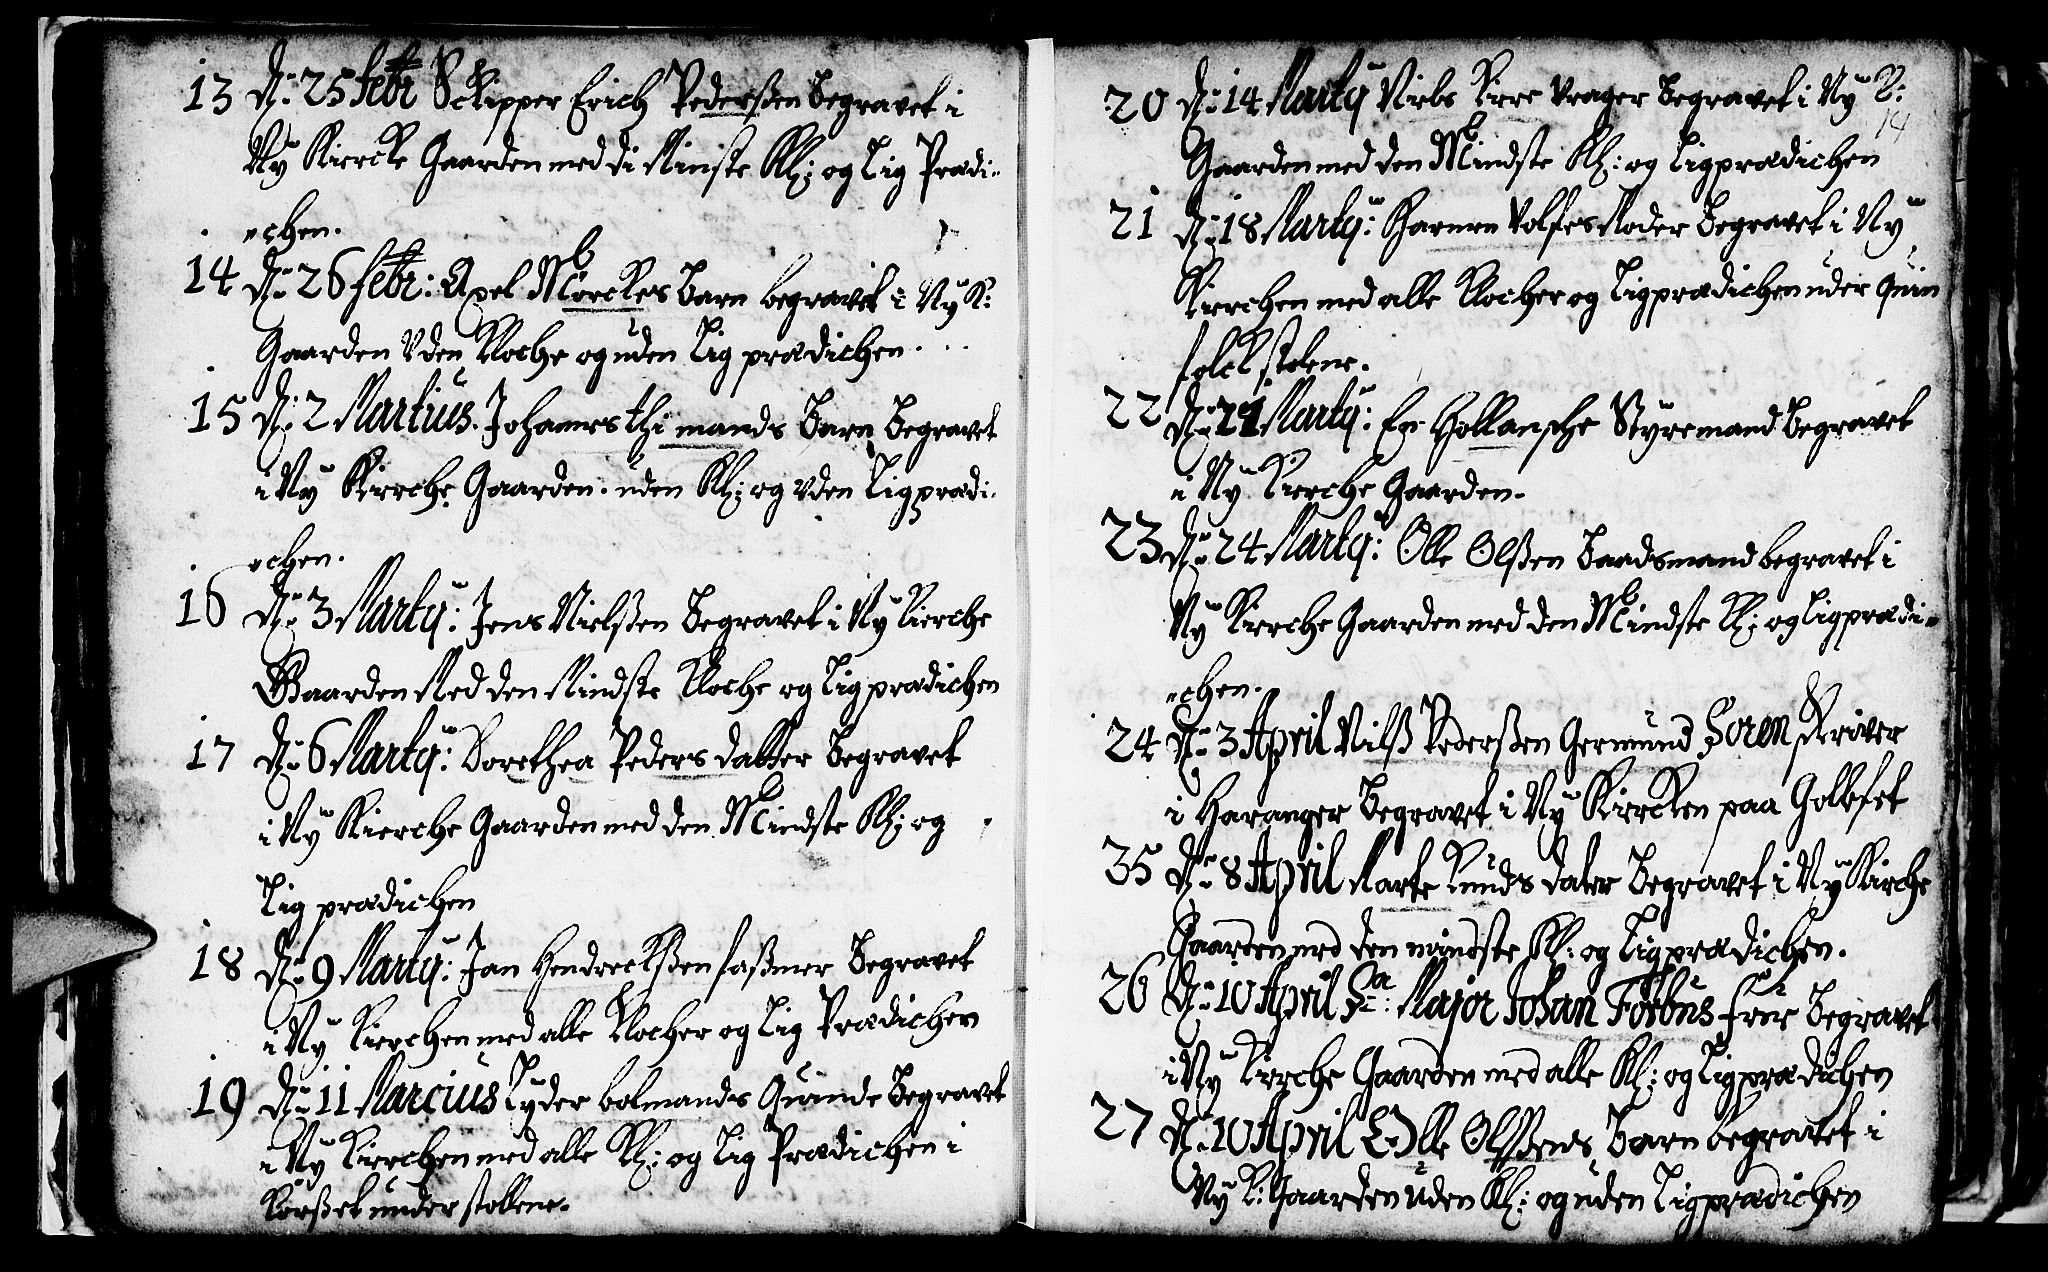 13 D: 25 Febr Schipper Erich Pederßen Begravet i
Ny Kiercke Gaarden med di Minste Kl: og Lig Prædi-
chen.
14 D: 26 febr: Axel Mörckes Barn begravet i Ny K:
Gaarden Uden Kloche og uden Lig prædichen.
15 D: 2 Martius. Johannes thimands Barn Begravet
i Ny Kierche Gaarden. uden Kl: og uden Ligprædi-
chen.
16 D: 3 Marty: Jens Nielßen Begravet i Ny Kierche
Gaarden Med den Mindste Kloche og Lig prædichen
17 D: 6 Marty: Dorethea Peders datter Begravet
i Ny Kierche Gaarden med den Mindste Kl: og
Lig prædichen
18 D: 9 Marty: Jan Hendreckßen faßmer Begravet
i Ny Kierchen med alle Klocher og Lig Prædichen
19 D: 11 Marcius Lyder bolmands Quinde Begravet
i Ny Kierchen med alle Kl: og Lig Prædichen i
Korßet under stollene.
14
20 D: 14 Marty Niels Vrager Begravet i Ny K:
Gaarden med den Mindste Kl: og Ligprædichen
21 D: 18 Marty: Harmen Volfes Moder Begravet i Ny
Kierchen med alle Klocher og Ligprædichen uder Quin
folck stolene.
22 D: 21 Marty: En Hollansche Styremand Begravet
i Ny Kierche Gaarden.
23 D: 24 Marty: Olle Olßen Baadsmand begravet i
Ny Kierche Gaarden med den Mindste Kl: og Ligprædi-
chen.
24 D: 3 April Nilß Pederßen Germund Soren skriver
i Haranger Begravet i Ny Kiercken paa Golfvet
35 D: 8 April Marte Knuds dater Begravet i Ny Kirche
Gaarden med den mindste Kl: og Ligprædichen.
26 D: 10 April Sa: Major Johan Forbus Frue Begravet
i Ny Kierche Gaarden med alle Kl: og Ligprædichen
27 D: 10 April Olle Olßens Barn begravet i
Ny K: Gaarden uden Kl: og uden Ligprædichen